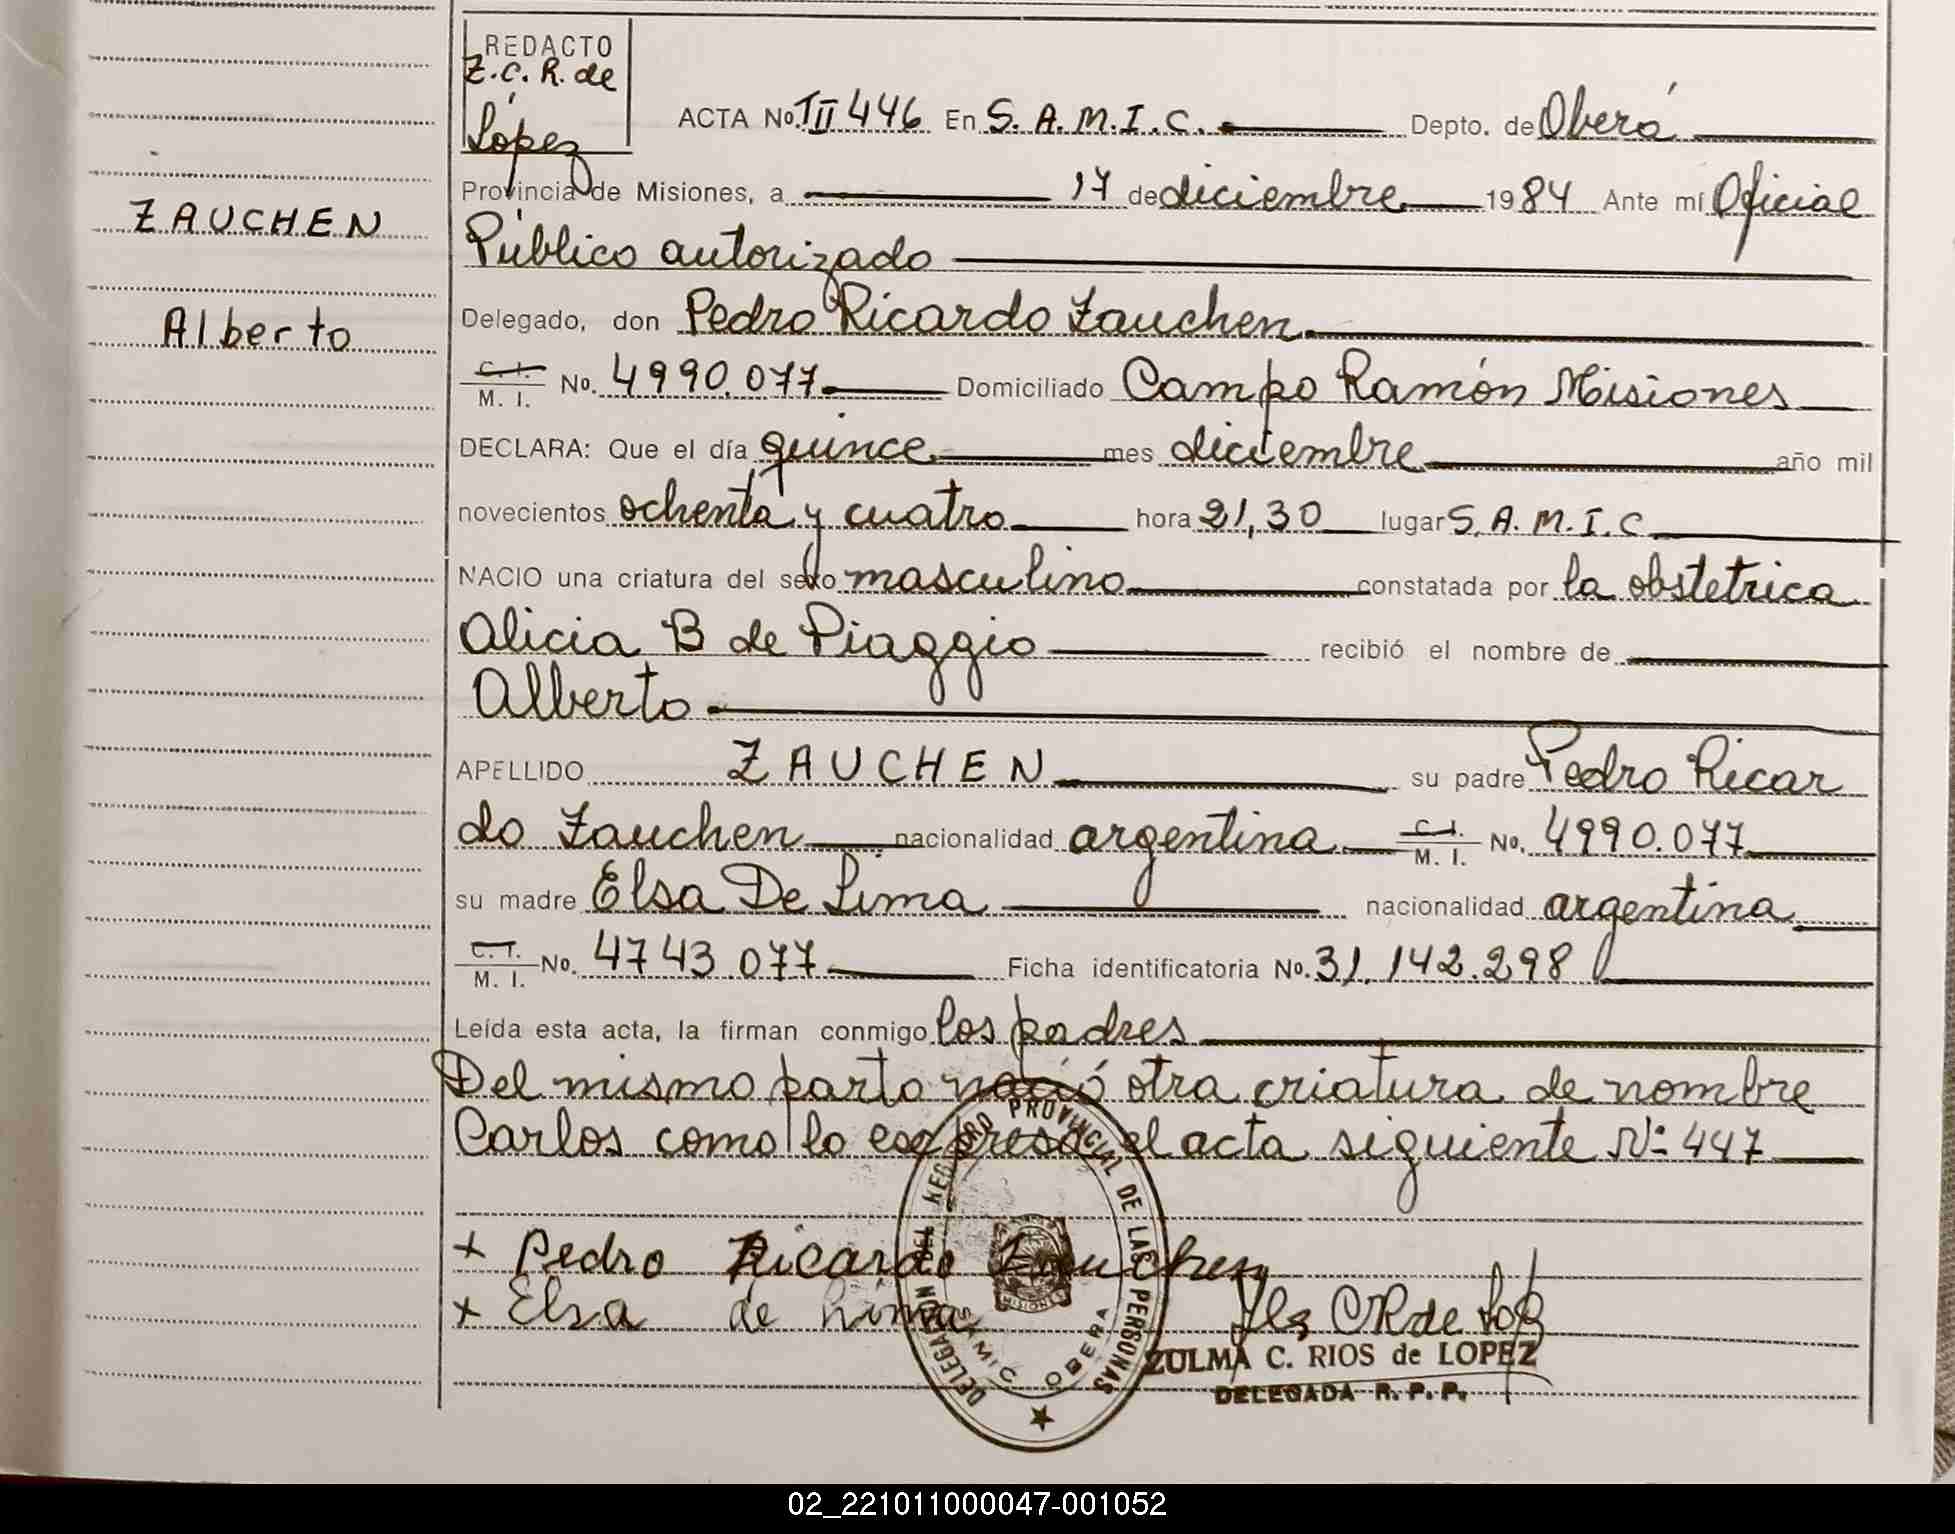 REDACTO
Z.C.R. de
López
ACTA No. TII 446 En S. A. M. I. C. Depto. de Oberá
Provincia de Misiones, a 17 de diciembre 1984 Ante mí Oficial
Público autorizado
Delegado, don Pedro Ricardo Zauchen
C. I.
M. I. No. 4990.077 Domiciliado Campo Ramón Misiones
DECLARA: Que el día quince mes diciembre año mil
novecientos ochenta y cuatro hora 21,30 lugar S. A. M. I. C
NACIO una criatura del sexo masculino constatada por la obstetrica
Alicia B de Piaggio recibió el nombre de
Alberto
APELLIDO ZAUCHEN su padre Pedro Ricar
do Zauchen nacionalidad argentina C. I. M. I. No. 4990.077
su madre Elsa De Lima nacionalidad argentina
C. I.
M. I. No. 4743.077 Ficha identificatoria No. 31.142.298
Leída esta acta, la firman conmigo los padres
Del mismo parto nació otra criatura de nombre
Carlos como lo expresa el acta siguiente Nº 447
ZAUCHEN
Alberto
+ Pedro Ricardo Zauchen
+ Elsa de Lima
DELEGACION DEL REGISTRO PROVINCIAL DE LAS PERSONAS
MISIONES
SAMIC OBERA
ZULMA C. RIOS de LOPEZ
DELEGADA R. P. P.
02_221011000047-001052